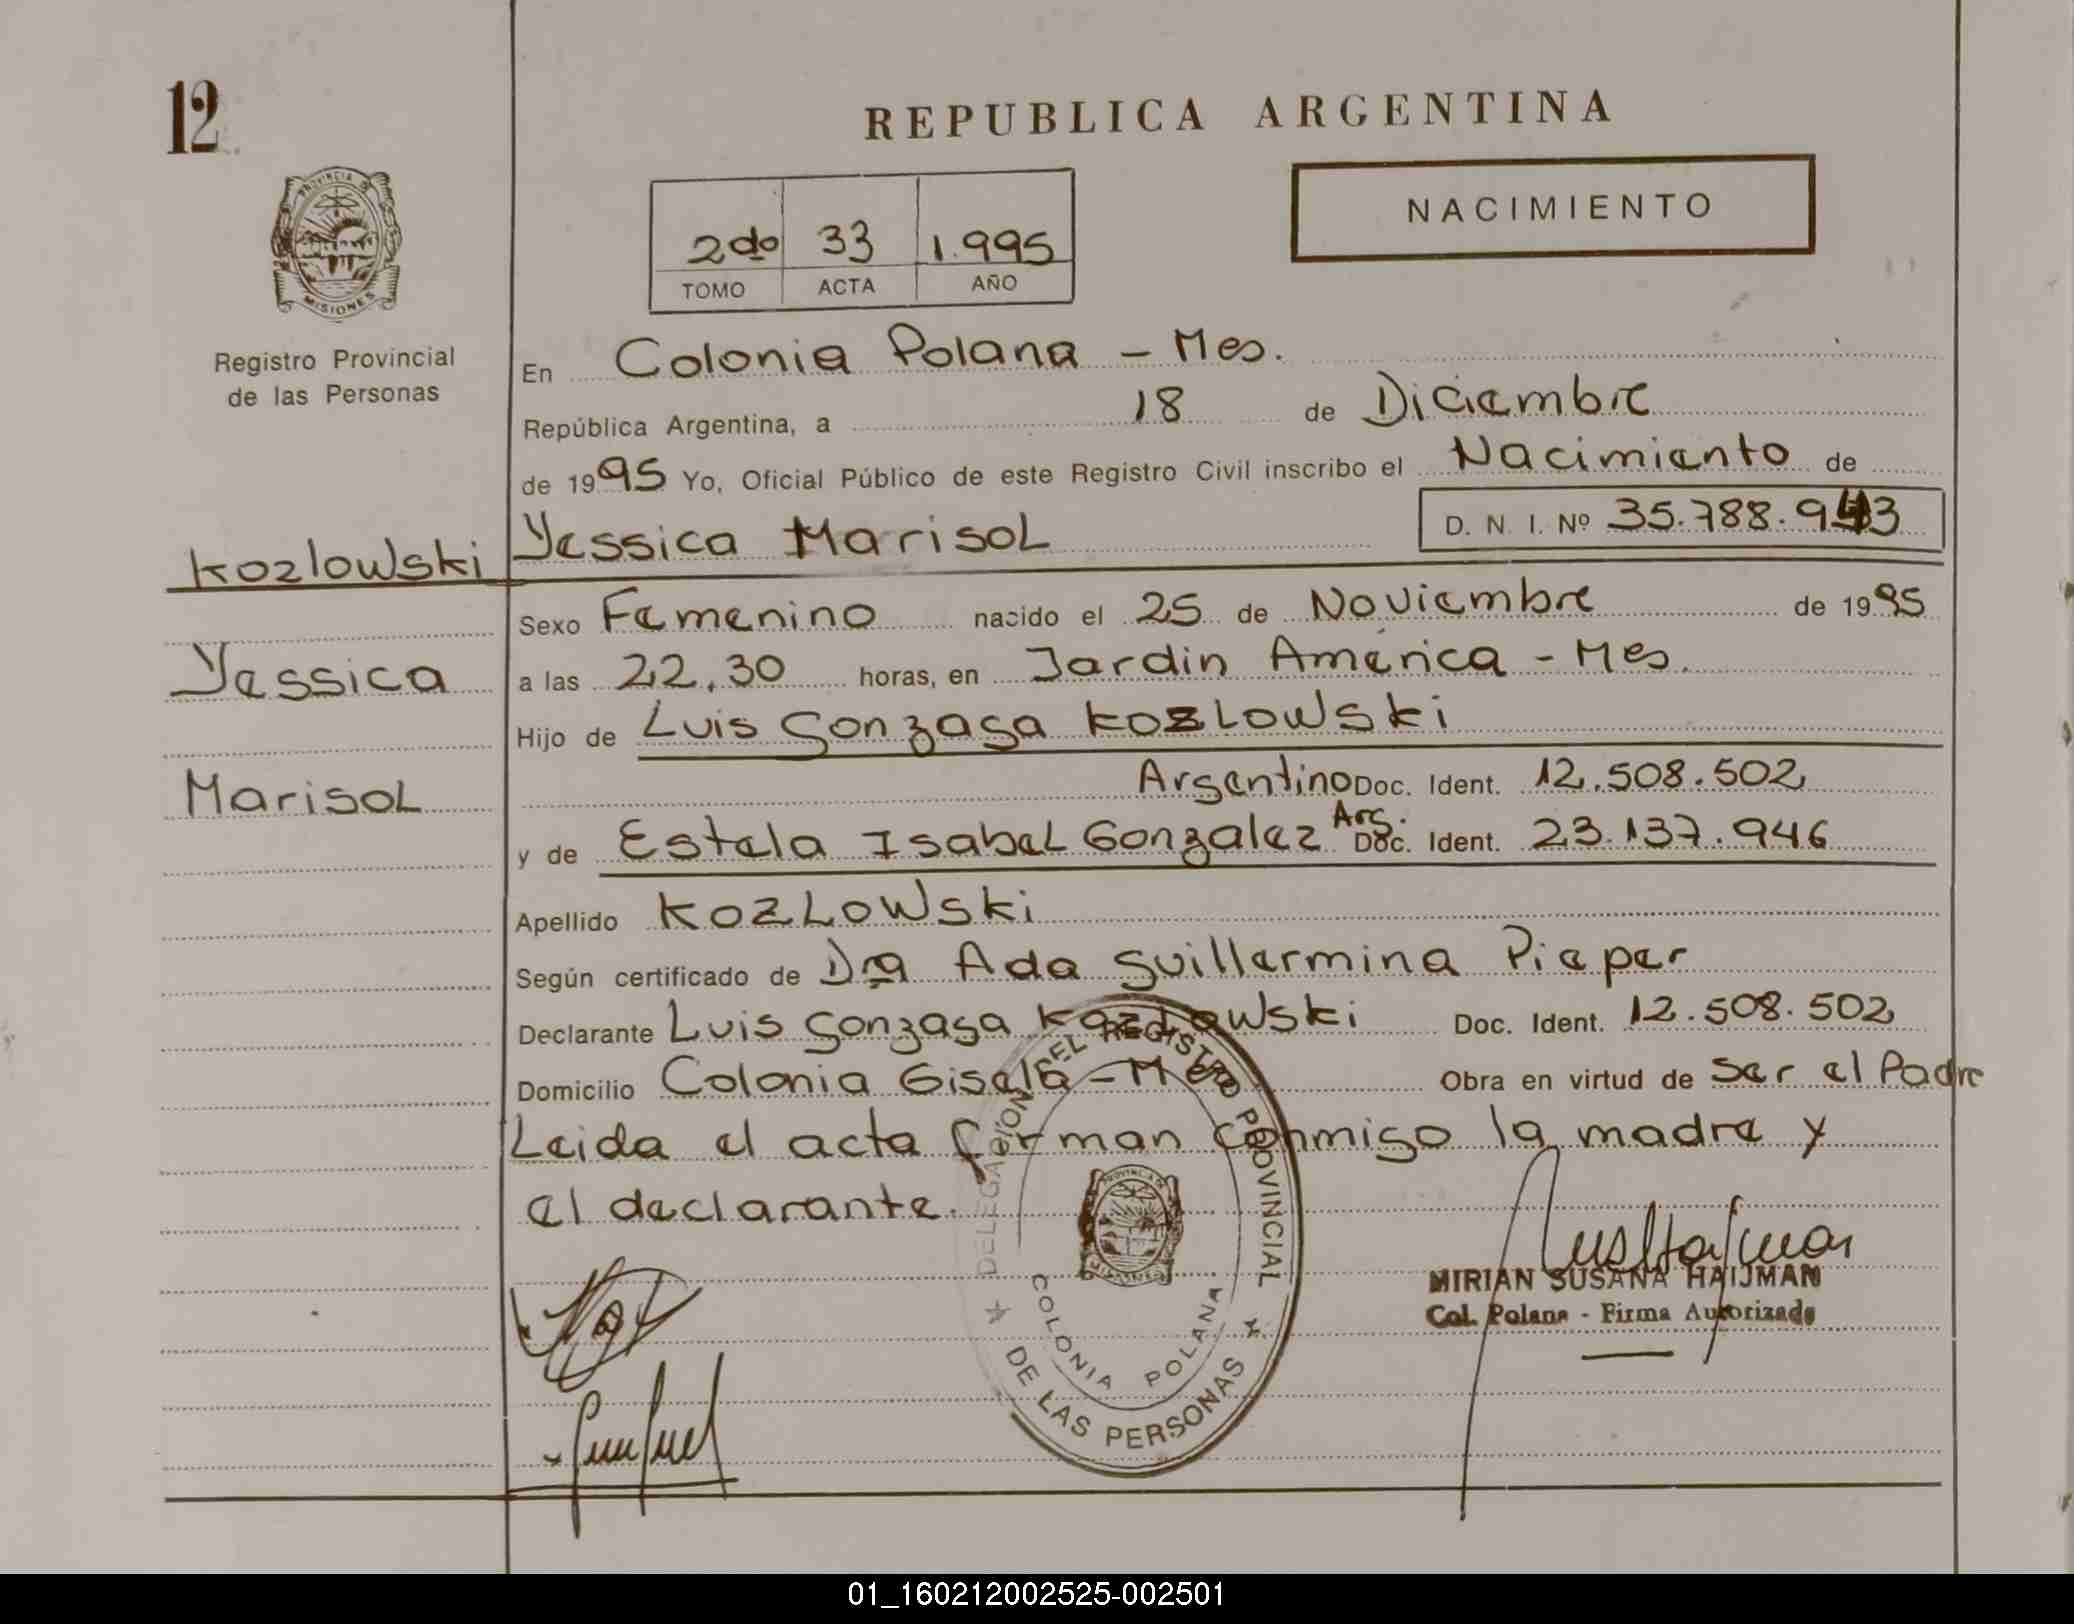 12
REPUBLICA ARGENTINA
NACIMIENTO
2do 33 1.995
TOMO ACTA AÑO
PROVINCIA DE
MISIONES
Registro Provincial
de las Personas
En Colonia Polana - Mes.
República Argentina, a 18 de Diciembre
de 1995 Yo, Oficial Público de este Registro Civil inscribo el Nacimiento de
D. N. I. Nº 35.788.943
Kozlowski Yessica Marisol
Sexo Femenino nacido el 25 de Noviembre de 1995
Yessica a las 22.30 horas, en Jardin América - Mes.
Hijo de Luis Gonzaga Kozlowski
Marisol Argentino Doc. Ident. 12.508.502
y de Estela Isabel Gonzalez Arg. Doc. Ident. 23.137.946
Apellido Kozlowski
Según certificado de Dra Ada Guillermina Pieper
Declarante Luis Gonzaga Kozlowski Doc. Ident. 12.508.502
Domicilio Colonia Gisela - Mes Obra en virtud de Ser el Padre
Leida el acta firman conmigo la madre y
el declarante.
DELEGACION DEL REGISTRO PROVINCIAL
DE LAS PERSONAS
COLONIA POLANA
MISIONES
MIRIAN SUSANA HAIJMAN
Col. Polana - Firma Autorizada
01_160212002525-002501